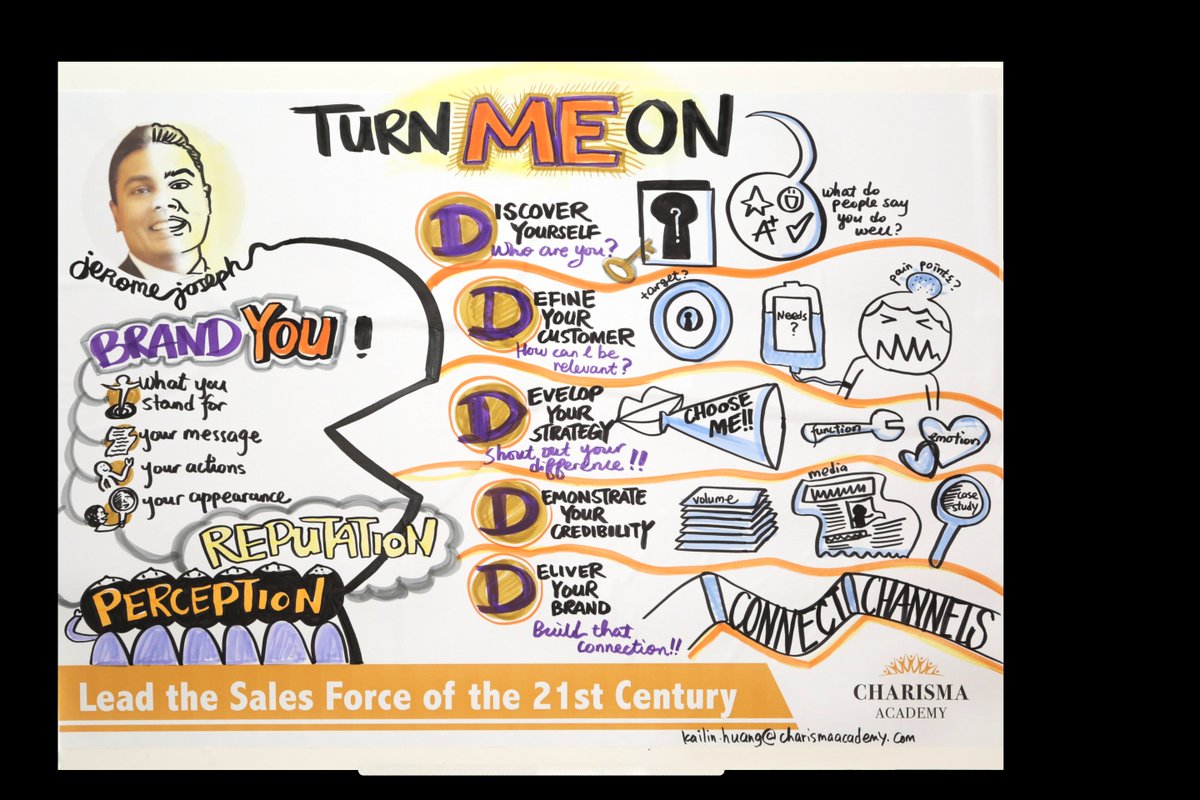 TURN ME ON
jerome joseph
BRAND YOU!
What you
stand for
your message
your actions
your appearance
REPUTATION
PERCEPTION
DISCOVER
YOURSELF
Who are you?
?
A+
What do
people say
you do
well?
DEFINE
YOUR
CUSTOMER
How can I be
relevant?
target?
Needs
?
pain points?
DEVELOP
YOUR
STRATEGY
Shout out your
difference!!
CHOOSE
ME!!
function
emotion
DEMONSTRATE
YOUR
CREDIBILITY
volume
media
case
study
DELIVER
YOUR
BRAND
Build that
connection!!
CONNECT CHANNELS
Lead the Sales Force of the 21st Century
CHARISMA
ACADEMY
kailin.huang@charismaacademy.com